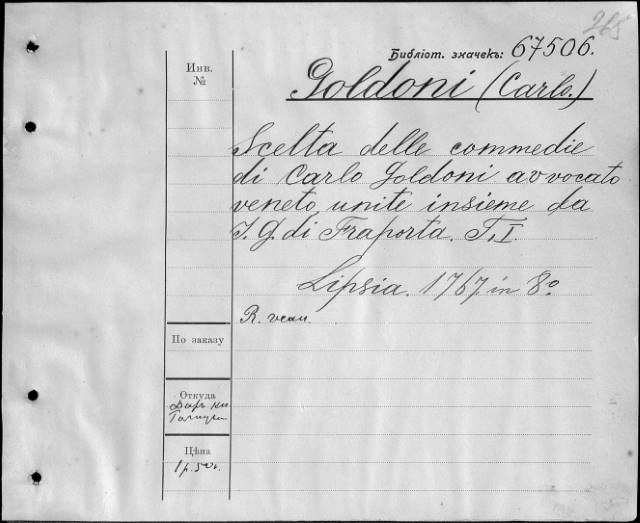 265
Библіот. значекъ: 67506.
Инв.
№
Goldoni (Carlo.)
Scelta delle commedie
di Carlo Goldoni avvocato
veneto, unite insieme da
J. G. di Fraporta. T. I.
Lipsia. 1767. in 8°.
R. veau.
По заказу
Откуда
Даръ кн
Голицына
Цѣна
1р. 50к.